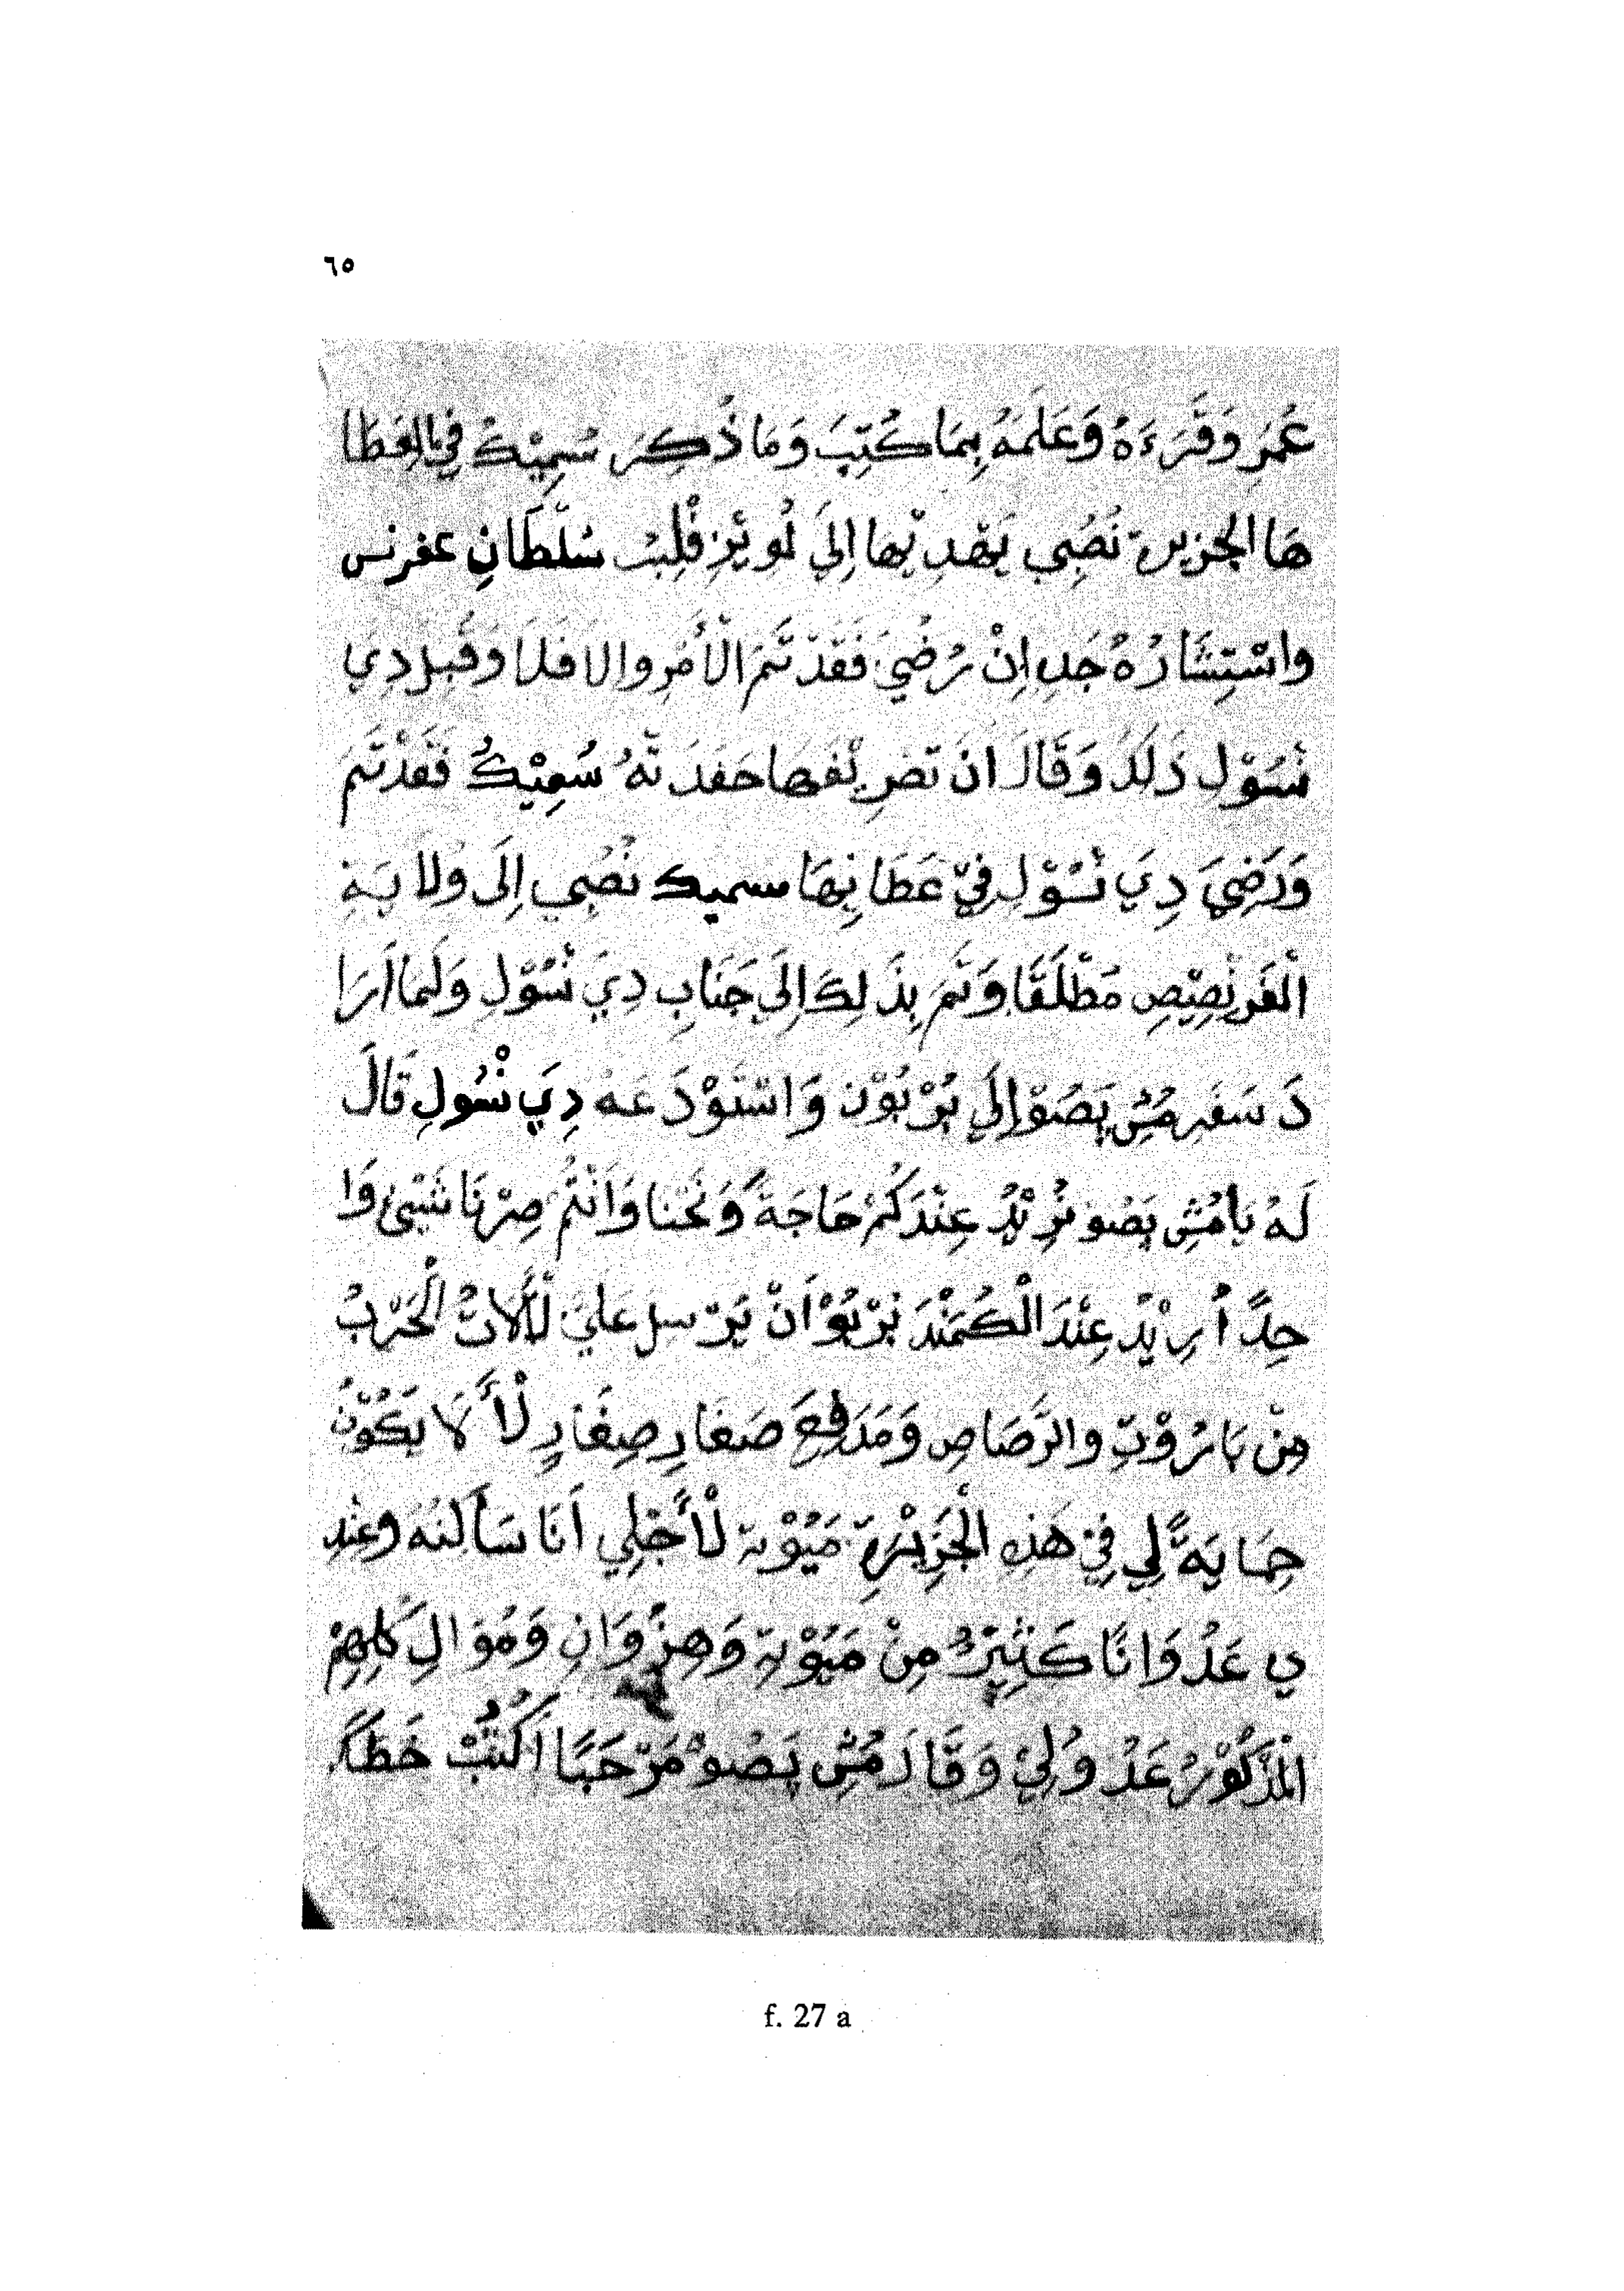 ٦٥
عُمَرَ وَقَرَءَهُ وَعَلَمَهُ بِمَا كُتِبَ وَمَا ذُكِرَ سُمِيْكُ فِي الِعَطَا
هَا الجزيرة نُصْبِي يَهْدِيْهَا إِلَي لُويْزِ فْلِيْبْ سُلْطَانِ عفرنس
واسْتِشَارُهُ جَدِ إِنْ رُضِيَ فَقَدْ تَمَ الْأَمْرِ وإلا فَلَا وَقَبِلَ دِي
نْسُوْلِ ذَلَكَ وَقَالَ انَ تَصْرِيْفَهَا حَفَدَتَهُ سُمِيْكُ فَقَدْ تَمَ
وَرَضِيَ دِيَ نْسُوْلِ فِيْ عَطَانِهَا سميك نُصْبِي إِلَى وَلَايَةِ
الْفَرِنْصِيْصِ مَطْلَقًا وَتَمَ بِذَلِكَ إِلَي جَنَابِ دِيَ نْسُوْلِ وَلَمَا أَرَا
دَ سَفَرِ مُشِ پَصُوْ إِلَي بُرْبُوْن وَاسْتَوْدَعَهُ دِيَ نْسُولِ قَالَ
لَهُ يَا مُشِ پَصُو نُرِيْدُ عِنْدَكُمْ حَاجَةً وَنَحْنَا وَأَنْتُمْ صِرْنَا شَيْئ وَا
حِدً أُرِيْدُ عِنْدَ الْكُمَنْدَ بُرْبُوْ أَنْ يَرْسِلَ عَلَيَ لْأَلَاتُ الْحَرْبُ
مِنْ بَارُوْتِ والرَّصَاصِ وَمَدَافِعَ صَغَارِ صِغَارٍ لْأَ لَا يَكُوْنُ
حِمَايَةً لِي فِيْ هَذِهِ الْجَزِيْرَةِ مَيُوْتَة لْأَجْلِي أَنَا سَأَلْتُهُ وَعِنْدِ
ي عَدُوَانًا كَثِيْرُ مِنْ مَيُوْتَةِ وَهِنْزُوَانِ وَمُوَالِ كُلِهِمْ
الْمَذْكُوْرُ عَدُوُ لِيْ وَقَالَ مُشِ پَصُوْ مَرْحَبًا أَكْتُبْ خَطَكَ
f. 27 a